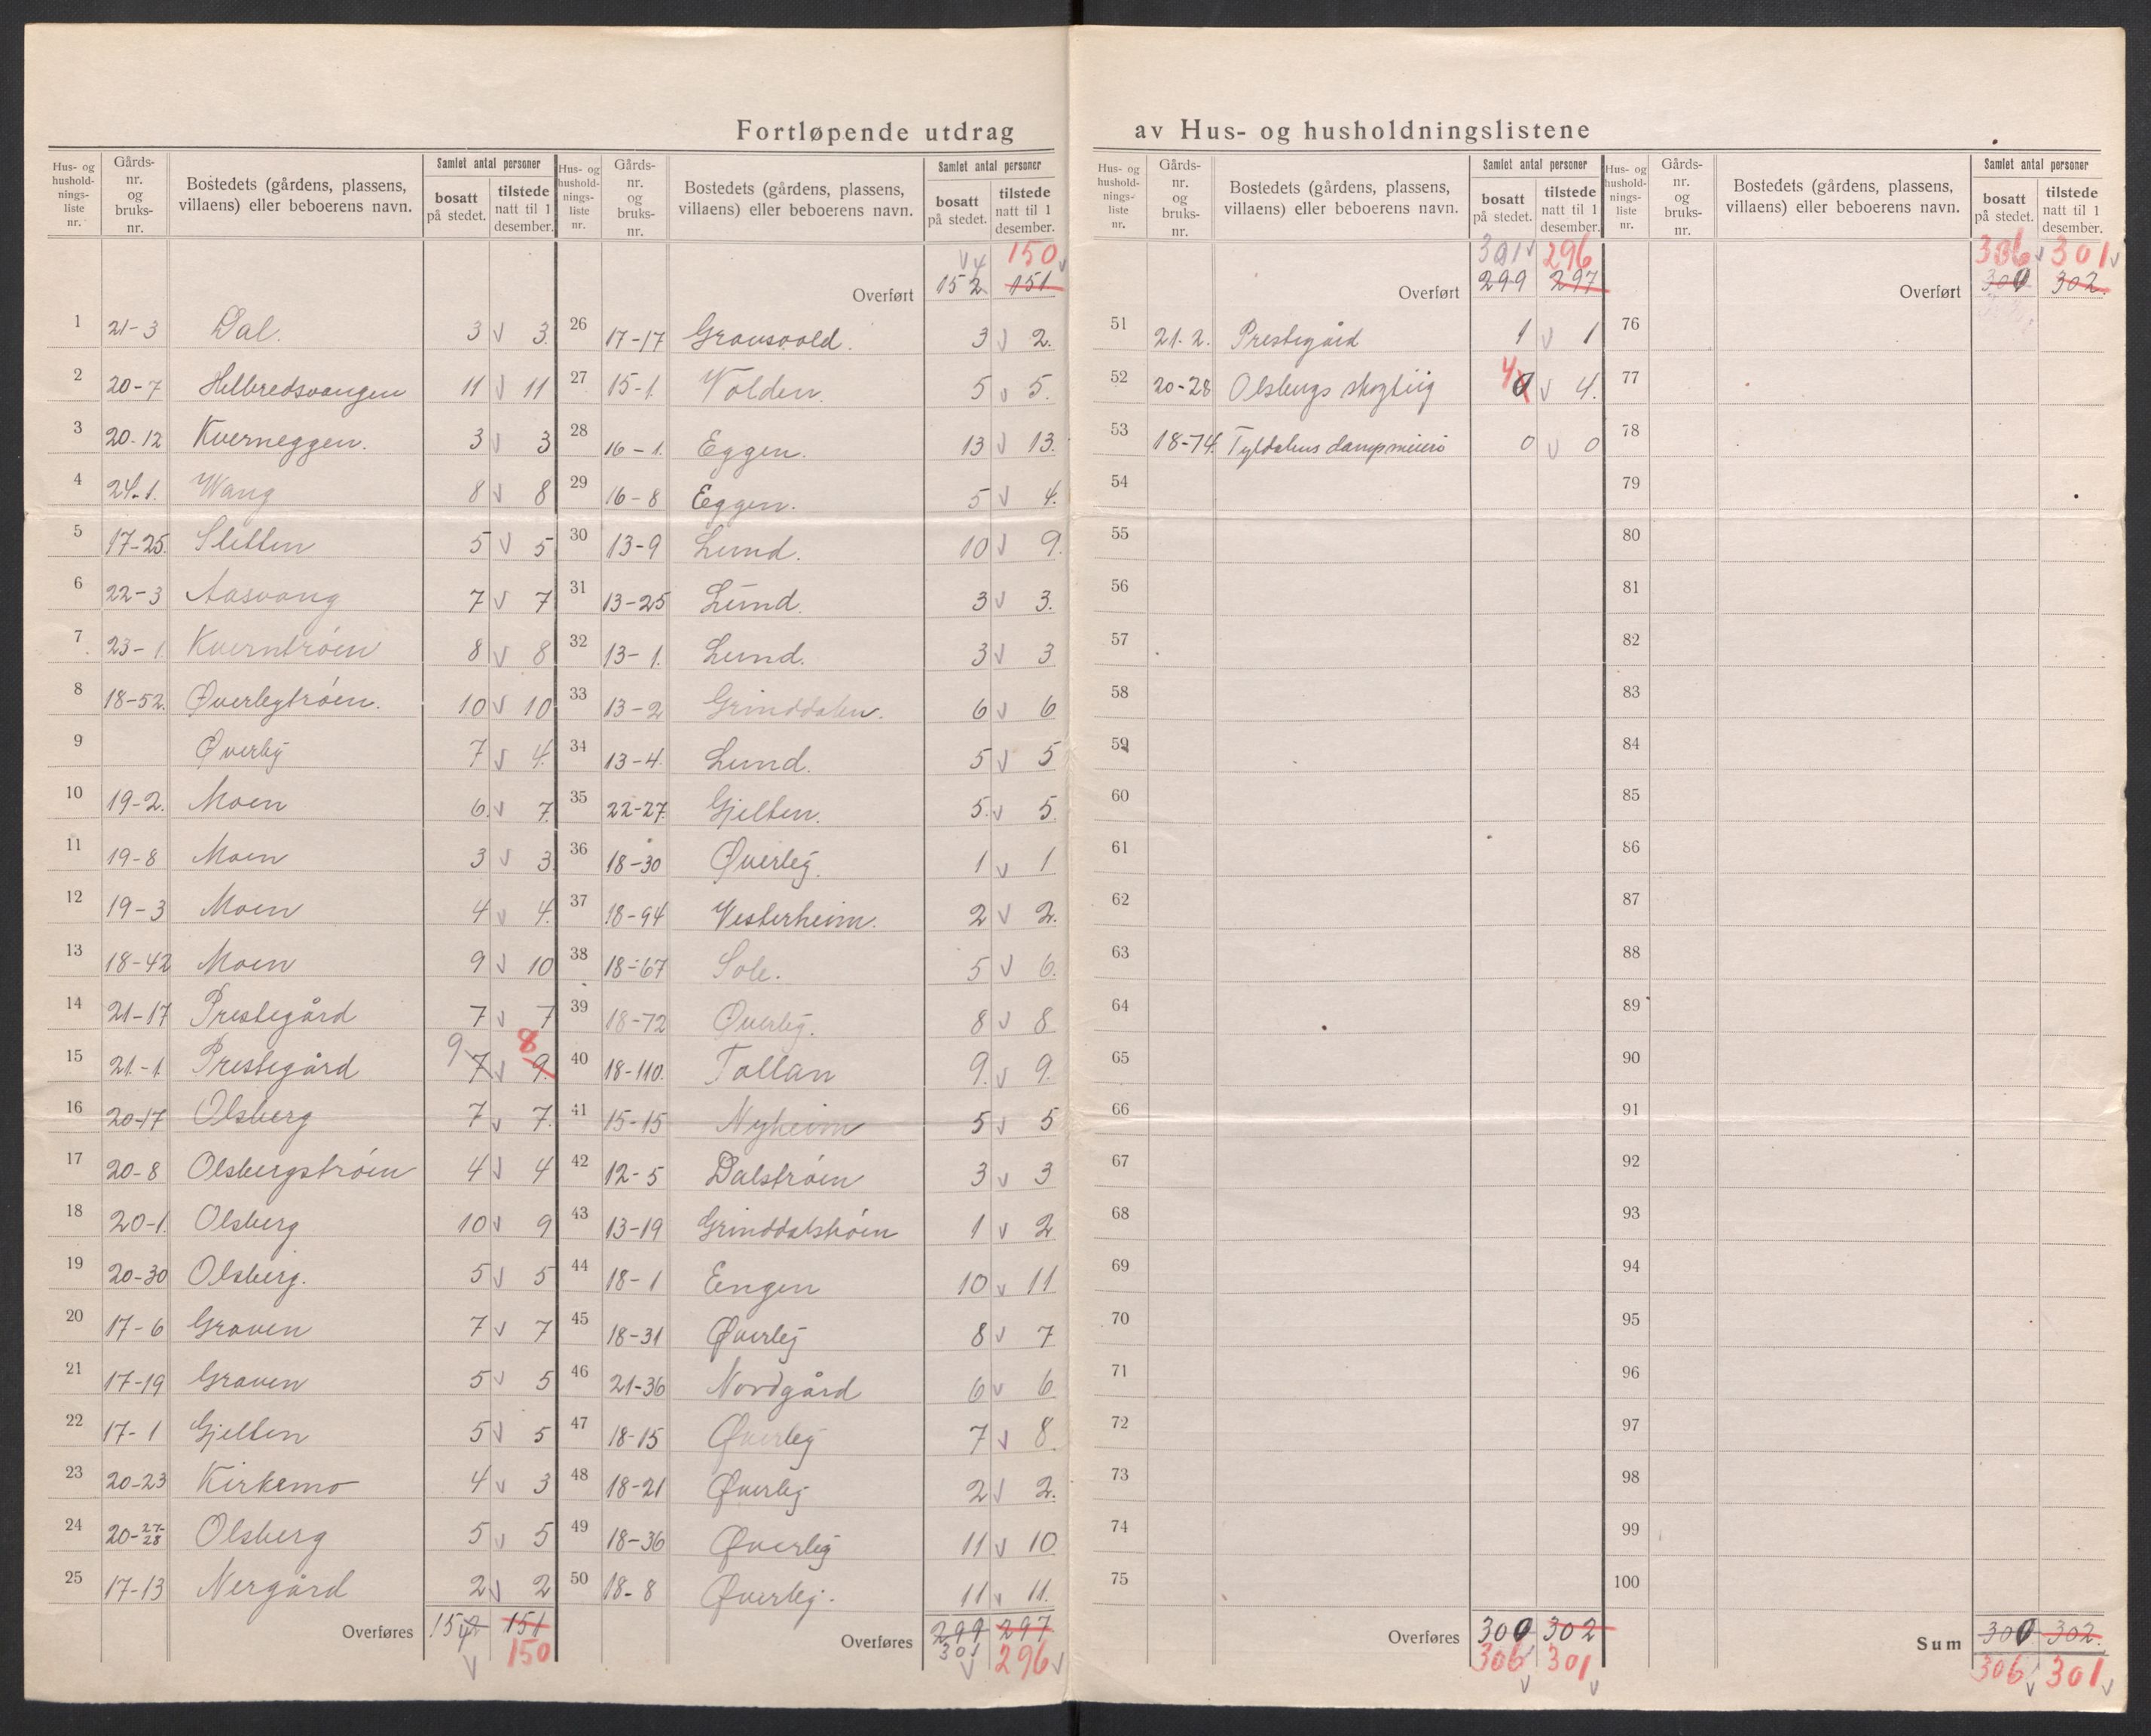 Fortløpende utdrag av Hus- og husholdningslistene
Hus- og hushold- nings- liste nr. | Gårds- nr. og bruks- nr. | Bostedets (gårdens, plassens, villaens) eller beboerens navn. | Samlet antal personer | bosatt på stedet. | tilstede natt til 1 desember.
1 21-3 Dal. 3 v 3
2 20-7 Helbredsvangen 11 v 11
3 20-12 Kverneggen. 3 v 3
4 24-1. Wang 8 v 8
5 17-25 Sletten 5 v 5
6 22-3 Aasvang 7 v 7
7 23-1 Kverntrøen 8 v 8
8 18-52. Øverlegtrøen. 10 v 10
9 Øverleg 7 v 4.
10 19-2. Moen 6. v 7.
11 19-8 Moen 3 v 3
12 19-3 Moen 4 v 4.
13 18-42 Moen 9 v 10
14 21-17 Prestegård 7 v 7
15 21-1 Prestegård 9 7 v 9. 8
16 20-17 Olsberg 7 v 7.
17 20-8 Olsbergstrøen 4 v 4
18 20-1. Olsberg 10 v 9
19 20-30 Olsberg. 5 v 5
20 17-6 Graven 7 v 7
21 17-19 Graven 5 v 5
22 17-1 Gjelten 5 v 5
23 20-23 Kirkemo 4 v 3
24 20-27-28 Olsberg 5 v 5
25 17-13 Nergård 2 v 2
Overføres 152 4 151 150
Hus- og hushold- nings- liste nr. | Gårds- nr. og bruks- nr. | Bostedets (gårdens, plassens, villaens) eller beboerens navn. | Samlet antal personer | bosatt på stedet. | tilstede natt til 1 desember.
v 4 150 v
Overført 152 151
26 17-17 Gravsvold. 3 v 2.
27 15-1. Volden. 5 v 5.
28 16-1. Eggen. 13 v 13.
29 16-8 Eggen. 5 v 4.
30 13-9 Lund. 10 v 9.
31 13-25 Lund. 3 v 3.
32 13-1. Lund. 3 v 3
33 13-2 Grinddalen. 6 v 6
34 13-4. Lund. 5 v 5
35 22-27. Gjelten. 5. v 5.
36 18-30 Øverleg. 1 v 1
37 18-94 Vesterheim. 2 v 2.
38 18-67 Sole. 5 v 6.
39 18-72 Øverleg. 8 v 8
40 18-110. Tollan 9. v 9.
41 15-15 Nyheim 5 v 5
42 12-5 Dalstrøen 3 v 3
43 13-19 Grinddalstrøen 1 v 2
44 18-1 Engen 10 v 11
45 18-31 Øverleg 8 v 7
46 21-36 Nordgård 6 v 6
47 18-15 Øverleg 7 v 8.
48 18-21 Øverleg 2 v 2.
49 18-36 Øverleg 11 v 10
50 18-8 Øverleg. 11 v 11.
Overføres 299 297
301 v 296 v
Hus- og hushold- nings- liste nr. | Gårds- nr. og bruks- nr. | Bostedets (gårdens, plassens, villaens) eller beboerens navn. | Samlet antal personer | bosatt på stedet. | tilstede natt til 1 desember.
301 v 296
Overført 299 297
51 21.2. Prestegård 1 v 1
52 20-28 Olsbergs skogteig 4 0 v 4.
53 18-74. Tyldalens dampmeieri 0 v 0
54
55
56
57
58
59
60
61
62
63
64
65
66
67
68
69
70
71
72
73
74
75
Overføres 300 302
306 301
v v
Hus- og hushold- nings- liste nr. | Gårds- nr. og bruks- nr. | Bostedets (gårdens, plassens, villaens) eller beboerens navn. | Samlet antal personer | bosatt på stedet. | tilstede natt til 1 desember.
306 v 301 v
Overført 300 302.
76
77
78
79
80
81
82
83
84
85
86
87
88
89
90
91
92
93
94
95
96
97
98
99
100
Sum 300 302.
306 v 301 v